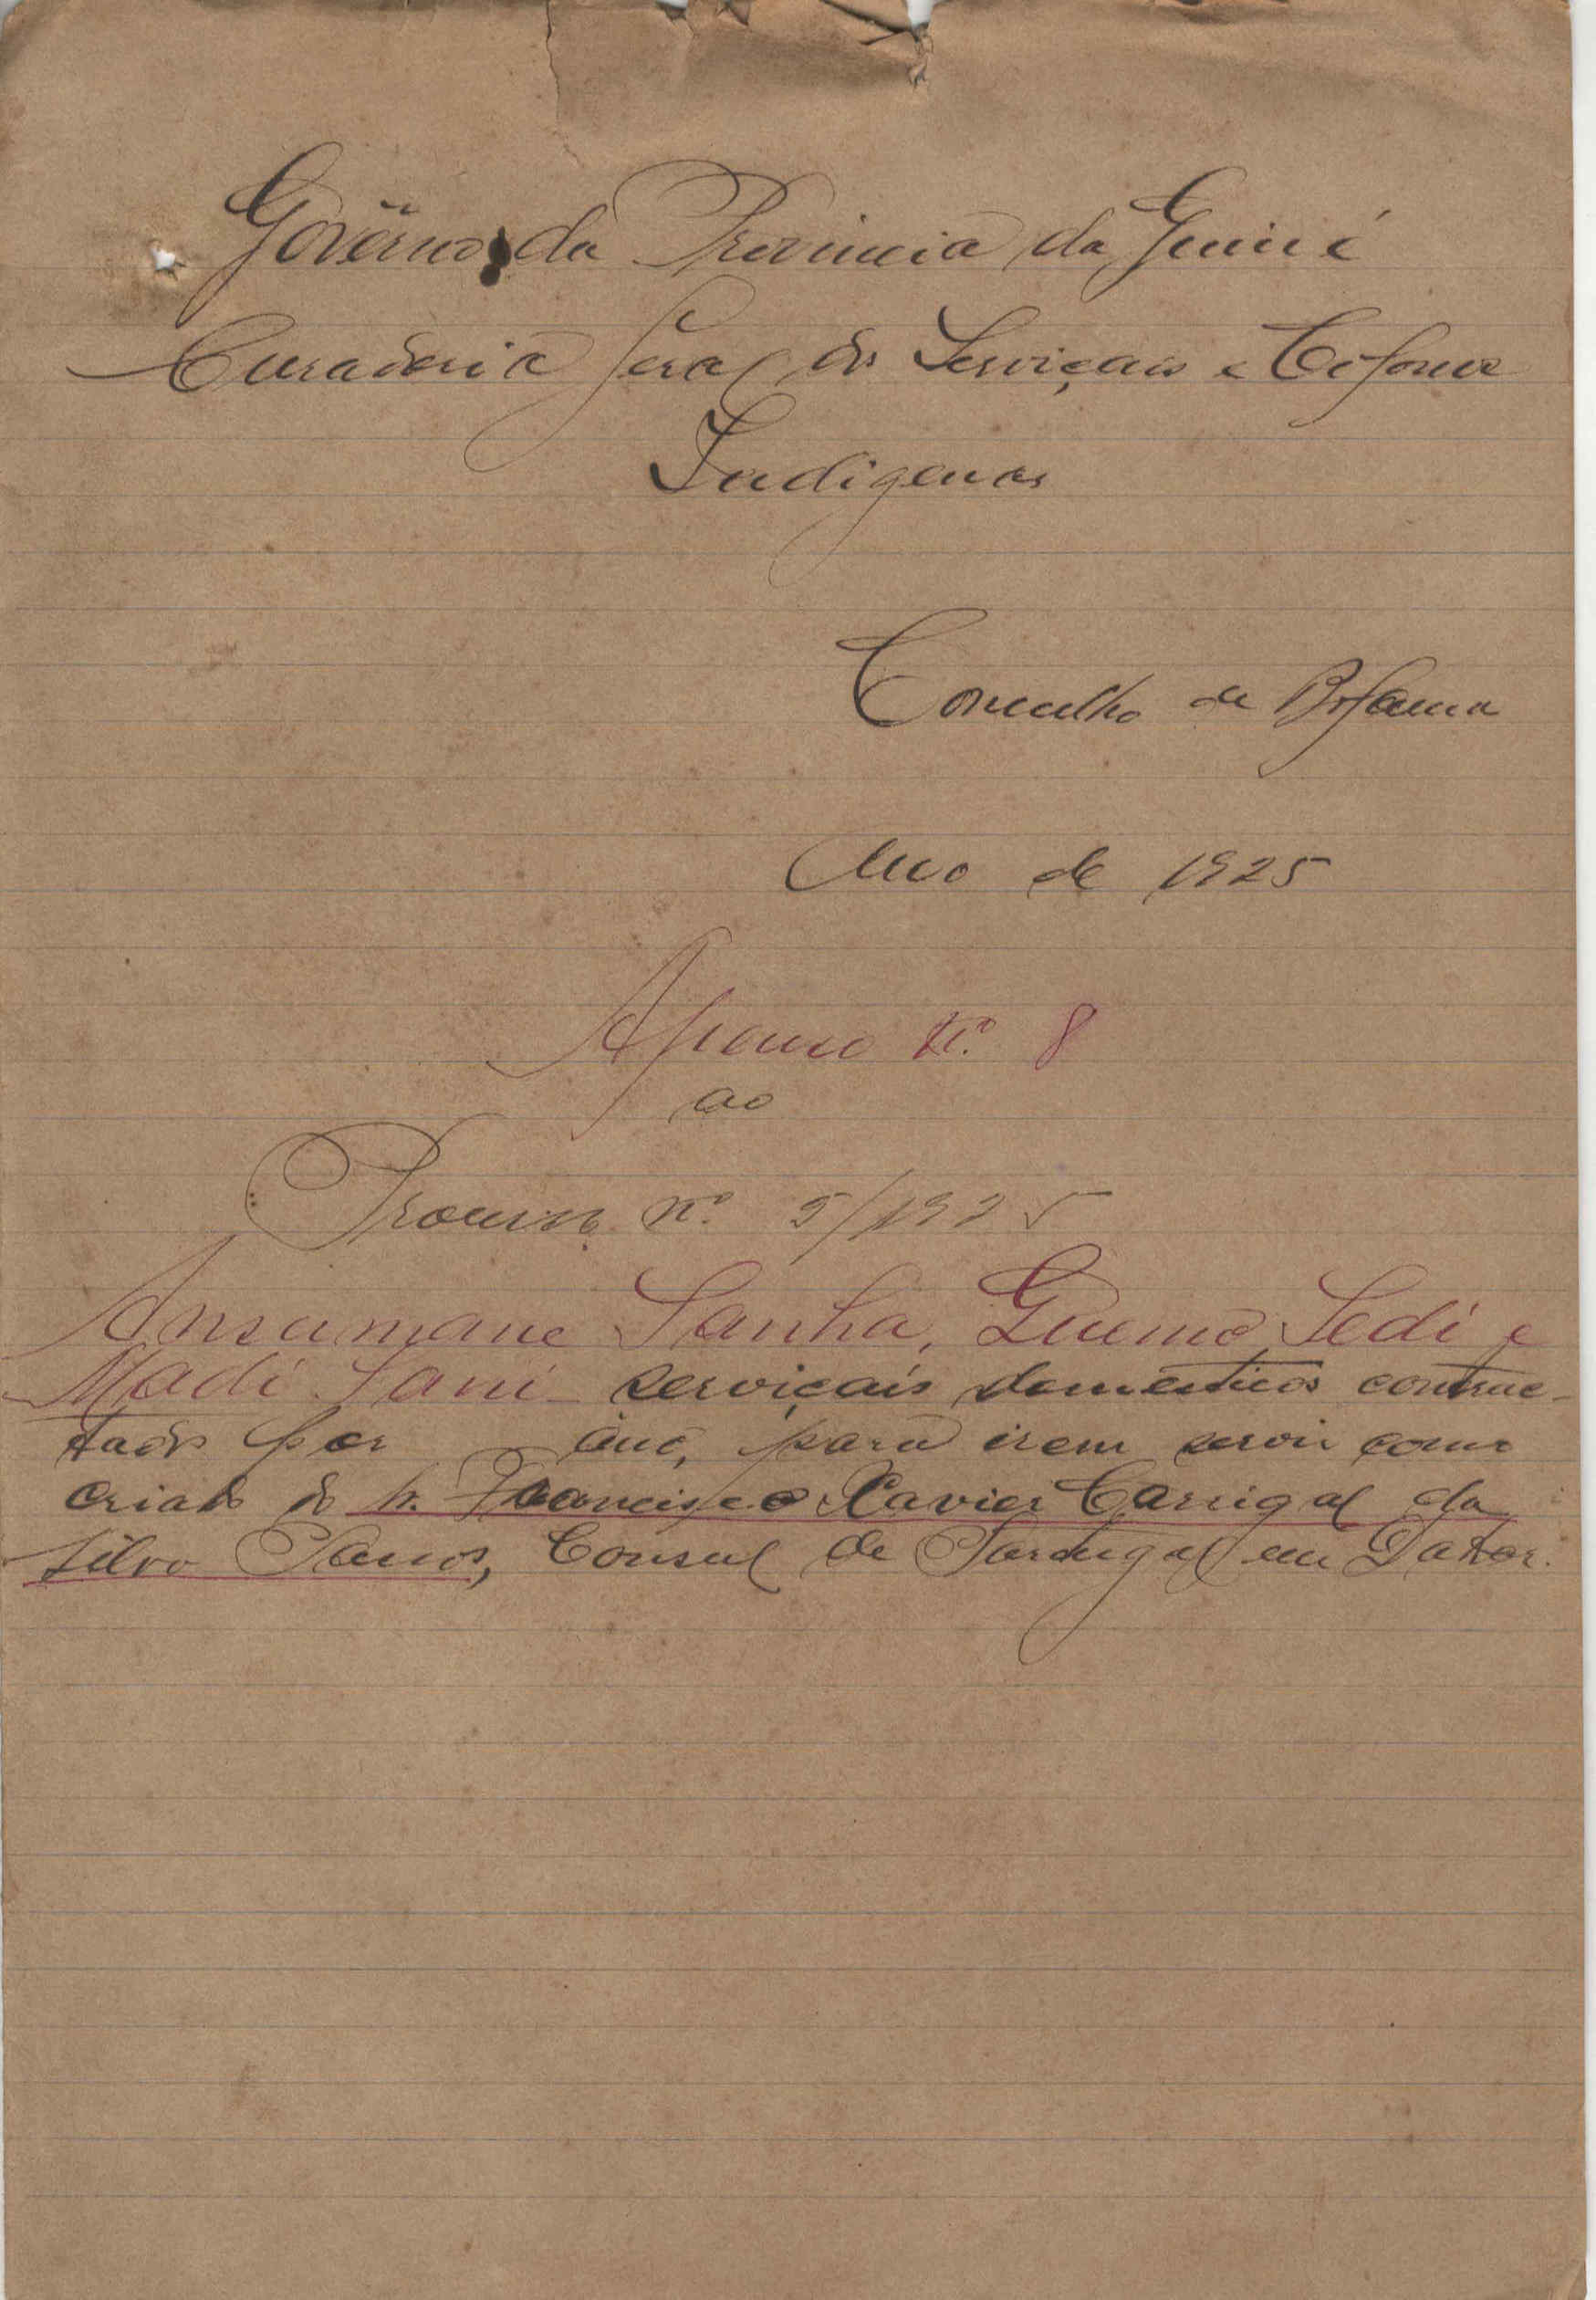 Govêrno da Provincia da Guiné
Curadoria Geral dos Serviçais e Colonos
Indigenas
Concelho de Bolama
Ano de 1925
Apenso Nº. 8
ao
Processo nº. 5/1925
Ansumane Sanha, Quemo Sedi e
Madi Sani serviçais domesticos contrac-
tados por ano, para irem servir como
criado do Sr. Francisco Xavier Carrigal da
Silva Pauos, Consul de Portugal em Dakar.